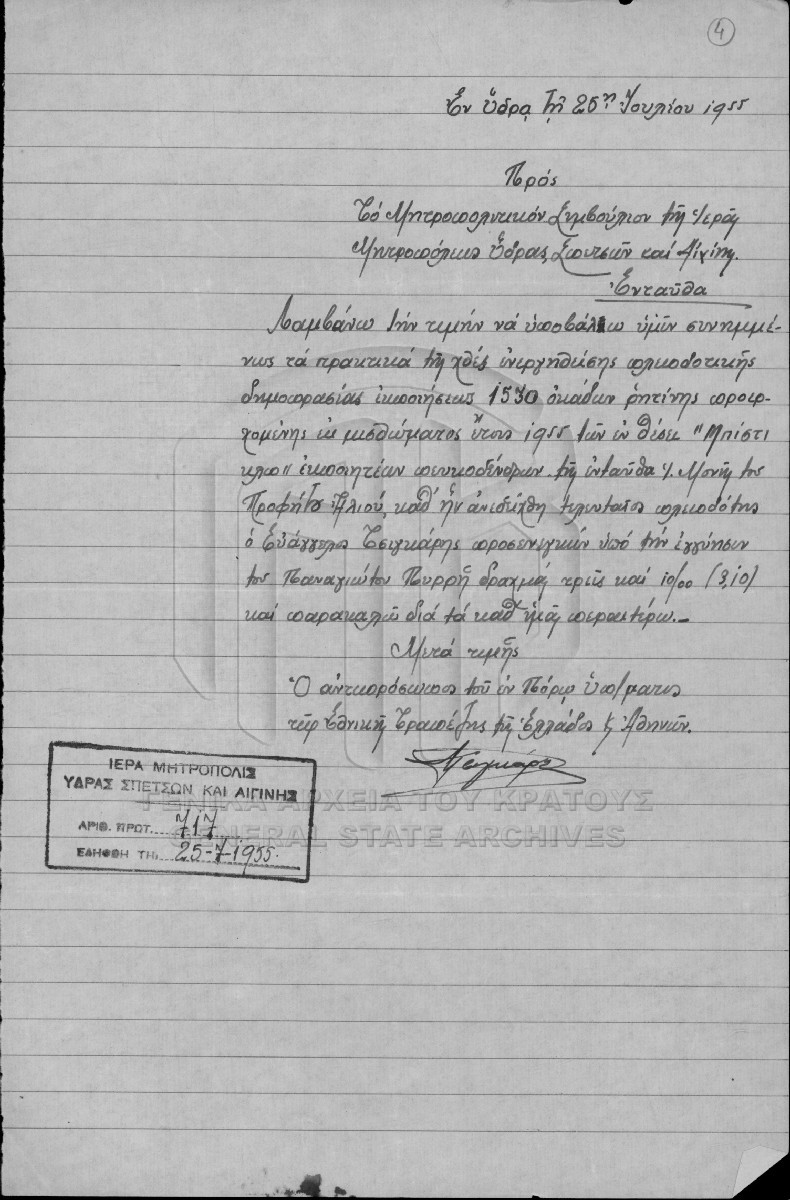 4
Ἐν Ὕδρᾳ τῇ 25ῃ Ἰουλίου 1955
Πρός
Τό Μητροπολιτικόν Συμβούλιον τῆς Ἱερᾶς
Μητροπόλεως Ὕδρας, Σπετσῶν καί Αἰγίνης.
Ἐνταῦθα
Λαμβάνω τήν τιμήν νά ὑποβάλλω ὑμῖν συνημμέ-
νως τά πρακτικά τῆς χθές ἐνεργηθείσης πλειοδοτικῆς
δημοπρασίας ἐκποιήσεως 1530 ὀκάδων ρητίνης προερ-
χομένης ἐκ μισθώματος ἔτους 1955 τῶν ἐν θέσει "Μπίστι
ἐκποιητέων πευκοδένδρων τῆς ἐνταῦθα Ἱ. Μονῆς τοῦ
Προφήτου Ἠλιού, καθ' ἥν ἀνεδείχθη τελευταῖος πλειοδότης
ὁ Εὐάγγελος Τσιγκάρης προσενεγκών ὑπό τήν ἐγγύησιν
τοῦ Παναγιώτου Πυρρῆ δραχμάς τρεῖς καί 10/00 (3,10)
καί παρακαλῶ διά τά καθ' ὑμᾶς περαιτέρω.—
Μετά τιμῆς
Ὁ ἀντιπρόσωπος τοῦ ἐν Πόρῳ ὑπο/ματος
τῆς Ἐθνικῆς Τραπέζης τῆς Ἑλλάδος & Ἀθηνῶν.
ΙΕΡΑ ΜΗΤΡΟΠΟΛΙΣ
ΥΔΡΑΣ ΣΠΕΤΣΩΝ ΚΑΙ ΑΙΓΙΝΗΣ
ΑΡΙΘ. ΠΡΩΤ. 717
ΕΛΗΦΘΗ ΤΗ 25-7-1955.
ΓΕΝΙΚΑ ΑΡΧΕΙΑ ΤΟΥ ΚΡΑΤΟΥΣ
GENERAL STATE ARCHIVES